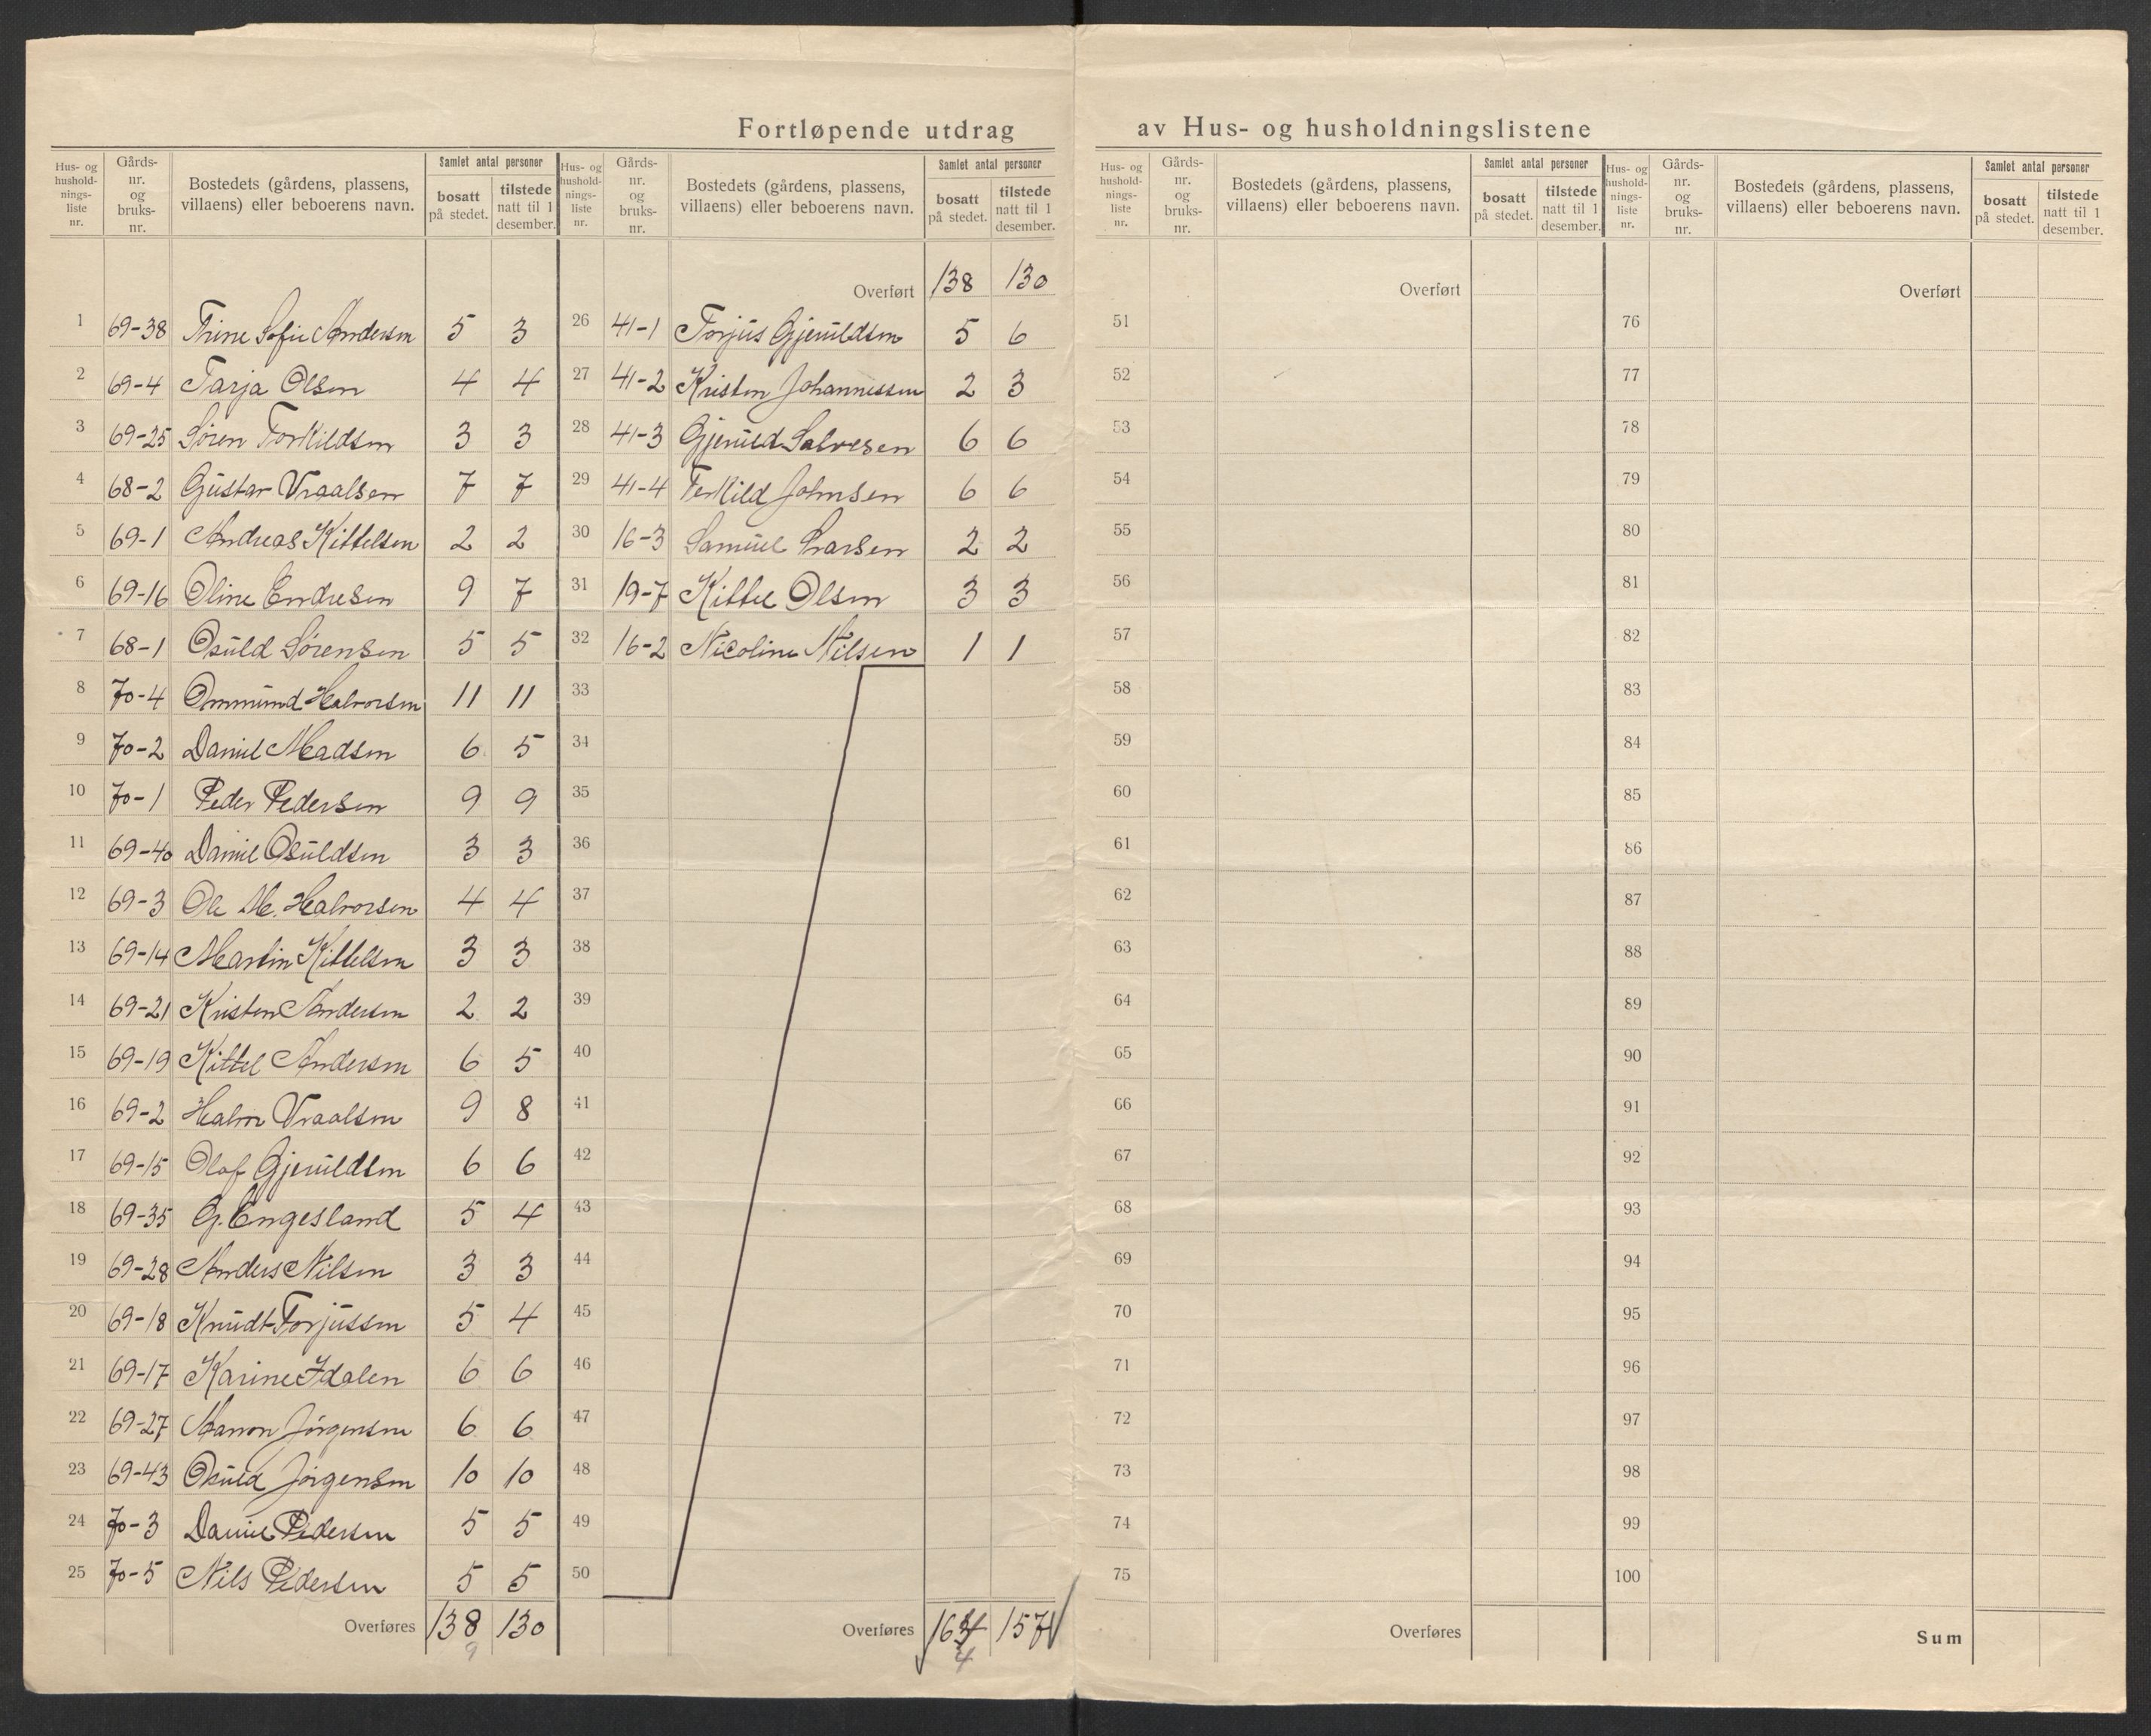 Fortløpende utdrag av Hus- og husholdningslistene
Hus- og hushold-nings-liste nr. | Gårds-nr. og bruks-nr. | Bostedets (gårdens, plassens, villaens) eller beboerens navn. | Samlet antal personer bosatt på stedet. | tilstede natt til 1 desember.
1 69-38 Trine Sofie Andersen 5 3
2 69-4 Tarja Olsen 4 4
3 69-25 Søren Torkildsen 3 3
4 68-2 Gustav Vraalsen 7 7
5 69-1 Andreas Kittelsen 2 2
6 69-16 Oline Endresen 9 7
7 68-1 Osuld Sørensen 5 5
8 70-4 Ommund Halvorsen 11 11
9 70-2 Daniel Madsen 6 5
10 70-1 Peder Pedersen 9 9
11 69-40 Daniel Osuldsen 3 3
12 69-3 Ole M. Halvorsen 4 4
13 69-14 Martin Kittelsen 3 3
14 69-21 Kristen Andersen 2 2
15 69-19 Kittel Andersen 6 5
16 69-2 Halvor Vraalsen 9 8
17 69-15 Olaf Gjeruldsen 6 6
18 69-35 G. Engesland 5 4
19 69-28 Anders Nilsen 3 3
20 69-18 Knudt Torjussen 5 4
21 69-17 Karine Idalen 6 6
22 69-27 Jörgensen 6 6
23 69-43 Osuld Jörgensen 10 10
24 70-3 Daniel Pedersen 5 5
25 70-5 Nils Pedersen 5 5
Overføres 138 130
9
Hus- og hushold-nings-liste nr. | Gårds-nr. og bruks-nr. | Bostedets (gårdens, plassens, villaens) eller beboerens navn. | Samlet antal personer bosatt på stedet. | tilstede natt til 1 desember.
Overført 138 130
26 41-1 Torjus Gjeruldsen 5 6
27 41-2 Kristen Johannessen 2 3
28 41-3 Gjeruld Salvesen 6 6
29 41-4 Terkild Johnsen 6 6
30 16-3 Samuel Larsen 2 2
31 19-7 Kittel Olsen 3 3
32 16-2 Nicoline Nilsen 1 1
33
34
35
36
37
38
39
40
41
42
43
44
45
46
47
48
49
50
Overføres 163 157
4
Hus- og hushold-nings-liste nr. | Gårds-nr. og bruks-nr. | Bostedets (gårdens, plassens, villaens) eller beboerens navn. | Samlet antal personer bosatt på stedet. | tilstede natt til 1 desember.
Overført
51
52
53
54
55
56
57
58
59
60
61
62
63
64
65
66
67
68
69
70
71
72
73
74
75
Overføres
Hus- og hushold-nings-liste nr. | Gårds-nr. og bruks-nr. | Bostedets (gårdens, plassens, villaens) eller beboerens navn. | Samlet antal personer bosatt på stedet. | tilstede natt til 1 desember.
Overført
76
77
78
79
80
81
82
83
84
85
86
87
88
89
90
91
92
93
94
95
96
97
98
99
100
Sum